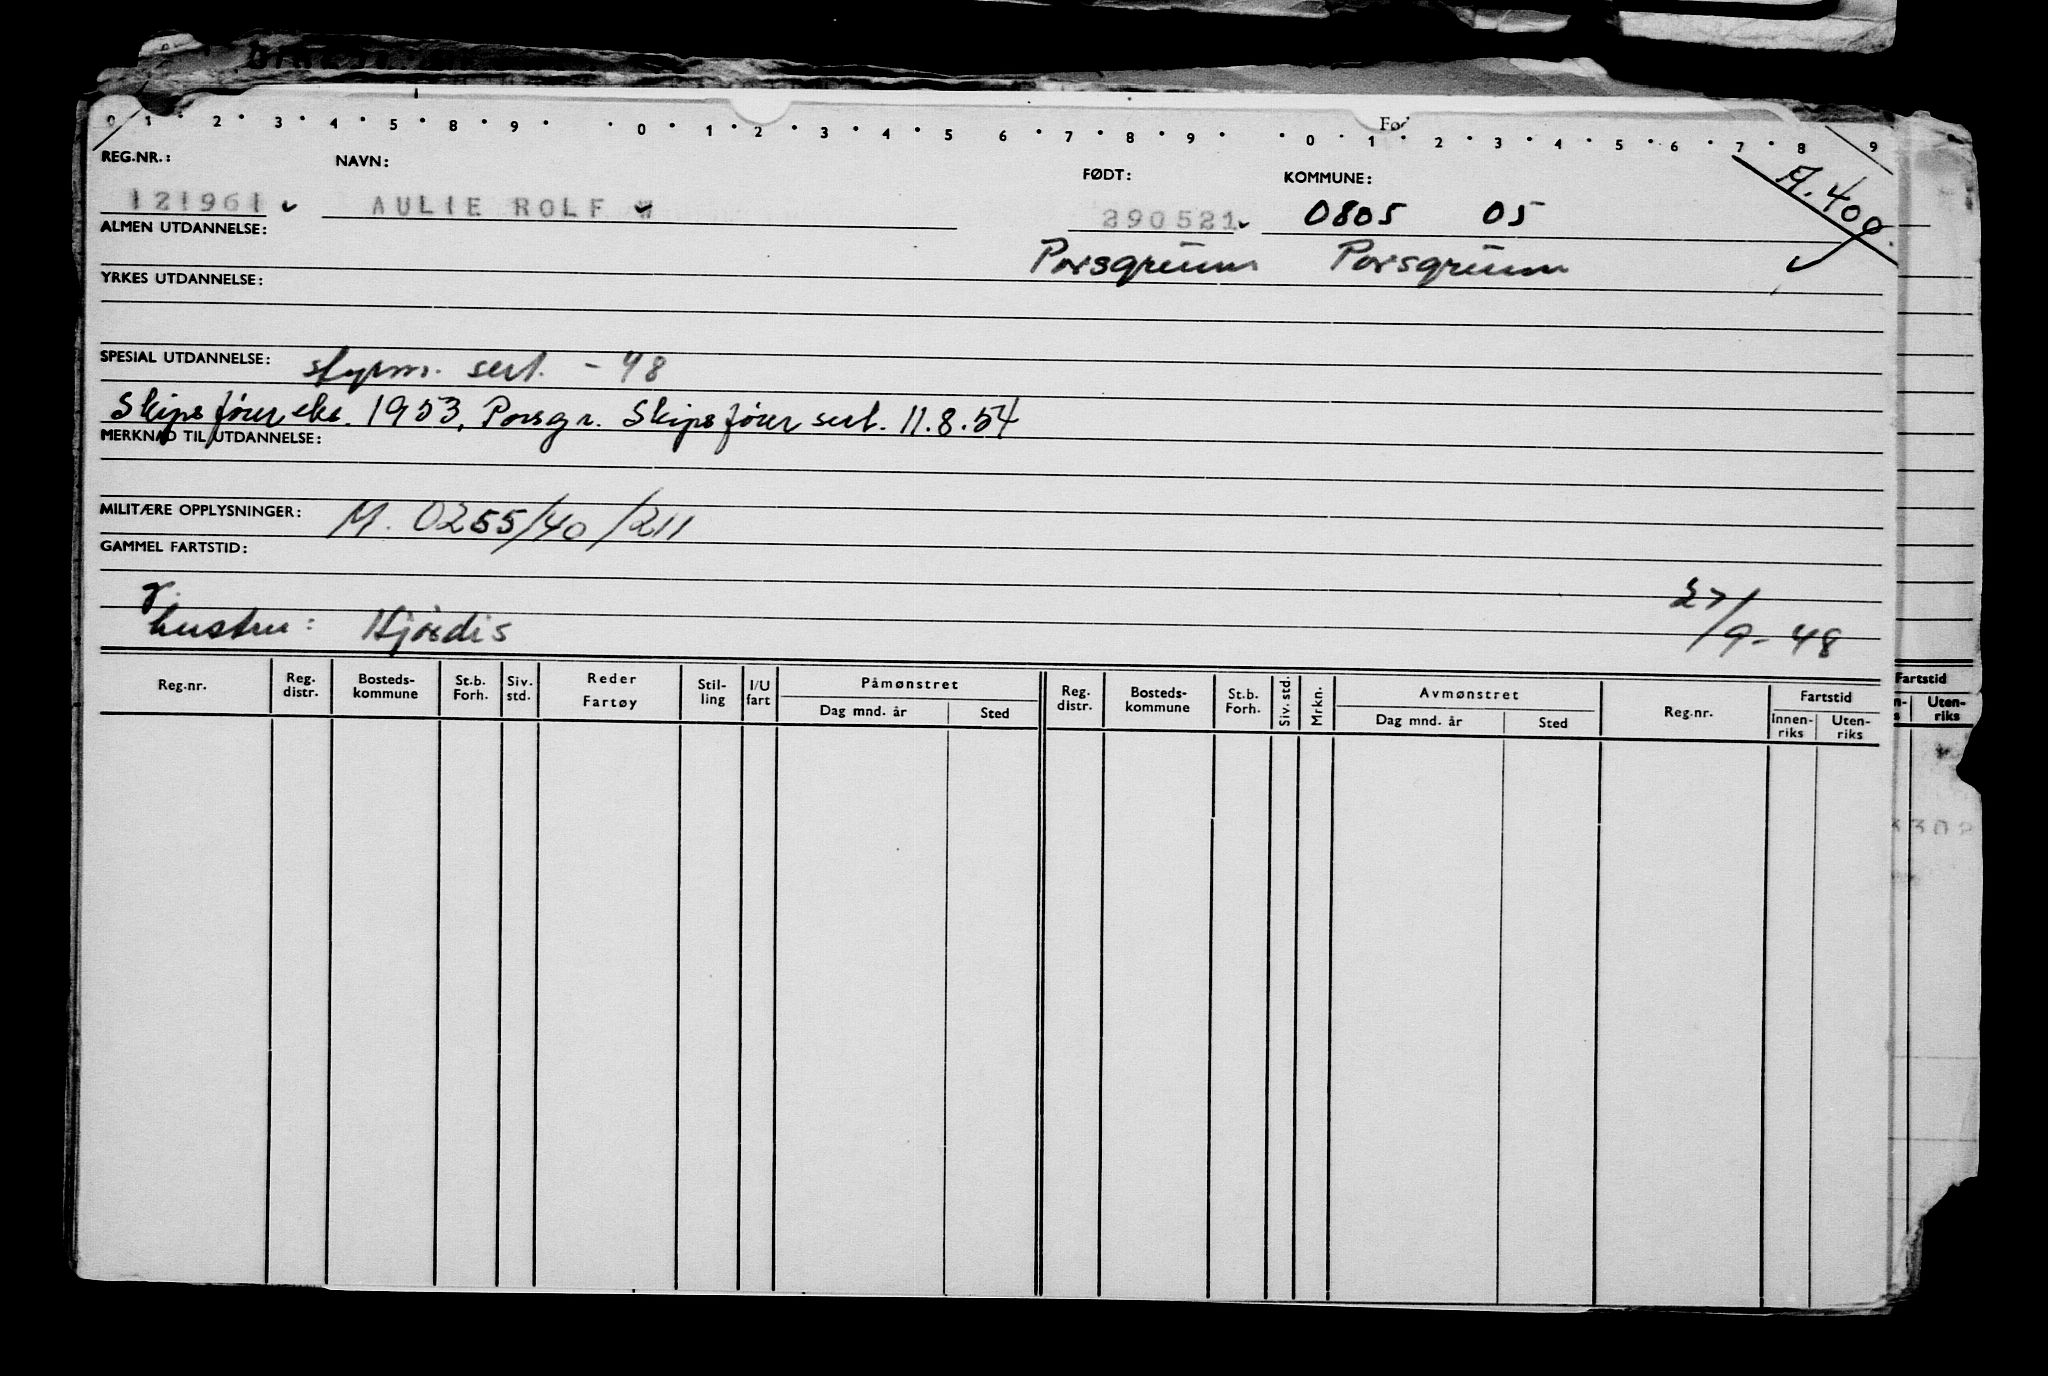 0 1 2 3 4 5 8 9 0 1 2 3 4 5 6 7 8 9 0 1 2 3 4 5 6 7 8 9
REG.NR.: NAVN: FØDT: KOMMUNE: A. 400
121961 AULIE ROLF W 290521 0805 05
ALMEN UTDANNELSE: Porsgrunn Porsgrunn
YRKES UTDANNELSE:
SPESIAL UTDANNELSE: styrm. sert. - 48
Skipsfører eks. 1953, Porsgr. Skipsfører sert. 11.8.54
MERKNAD TIL UTDANNELSE:
MILITÆRE OPPLYSNINGER: M. 0255/40/211
GAMMEL FARTSTID:
hustru: Hjørdis 27/9-48
Reg.nr. Reg. distr. Bosteds-kommune St.b. Forh. Siv. std. Reder Fartøy Stil-ling I/U fart Påmønstret Dag mnd. år Sted Reg. distr. Bosteds-kommune St.b. Forh. Siv. std. Mrkn. Avmønstret Dag mnd. år Sted Reg.nr. Fartstid Innen-riks Uten-riks
Fartstid
Uten-riks